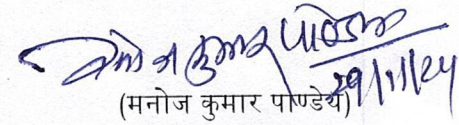 मनोज कुमार पाण्डेय
29/11/24
(मनोज कुमार पाण्डेय)